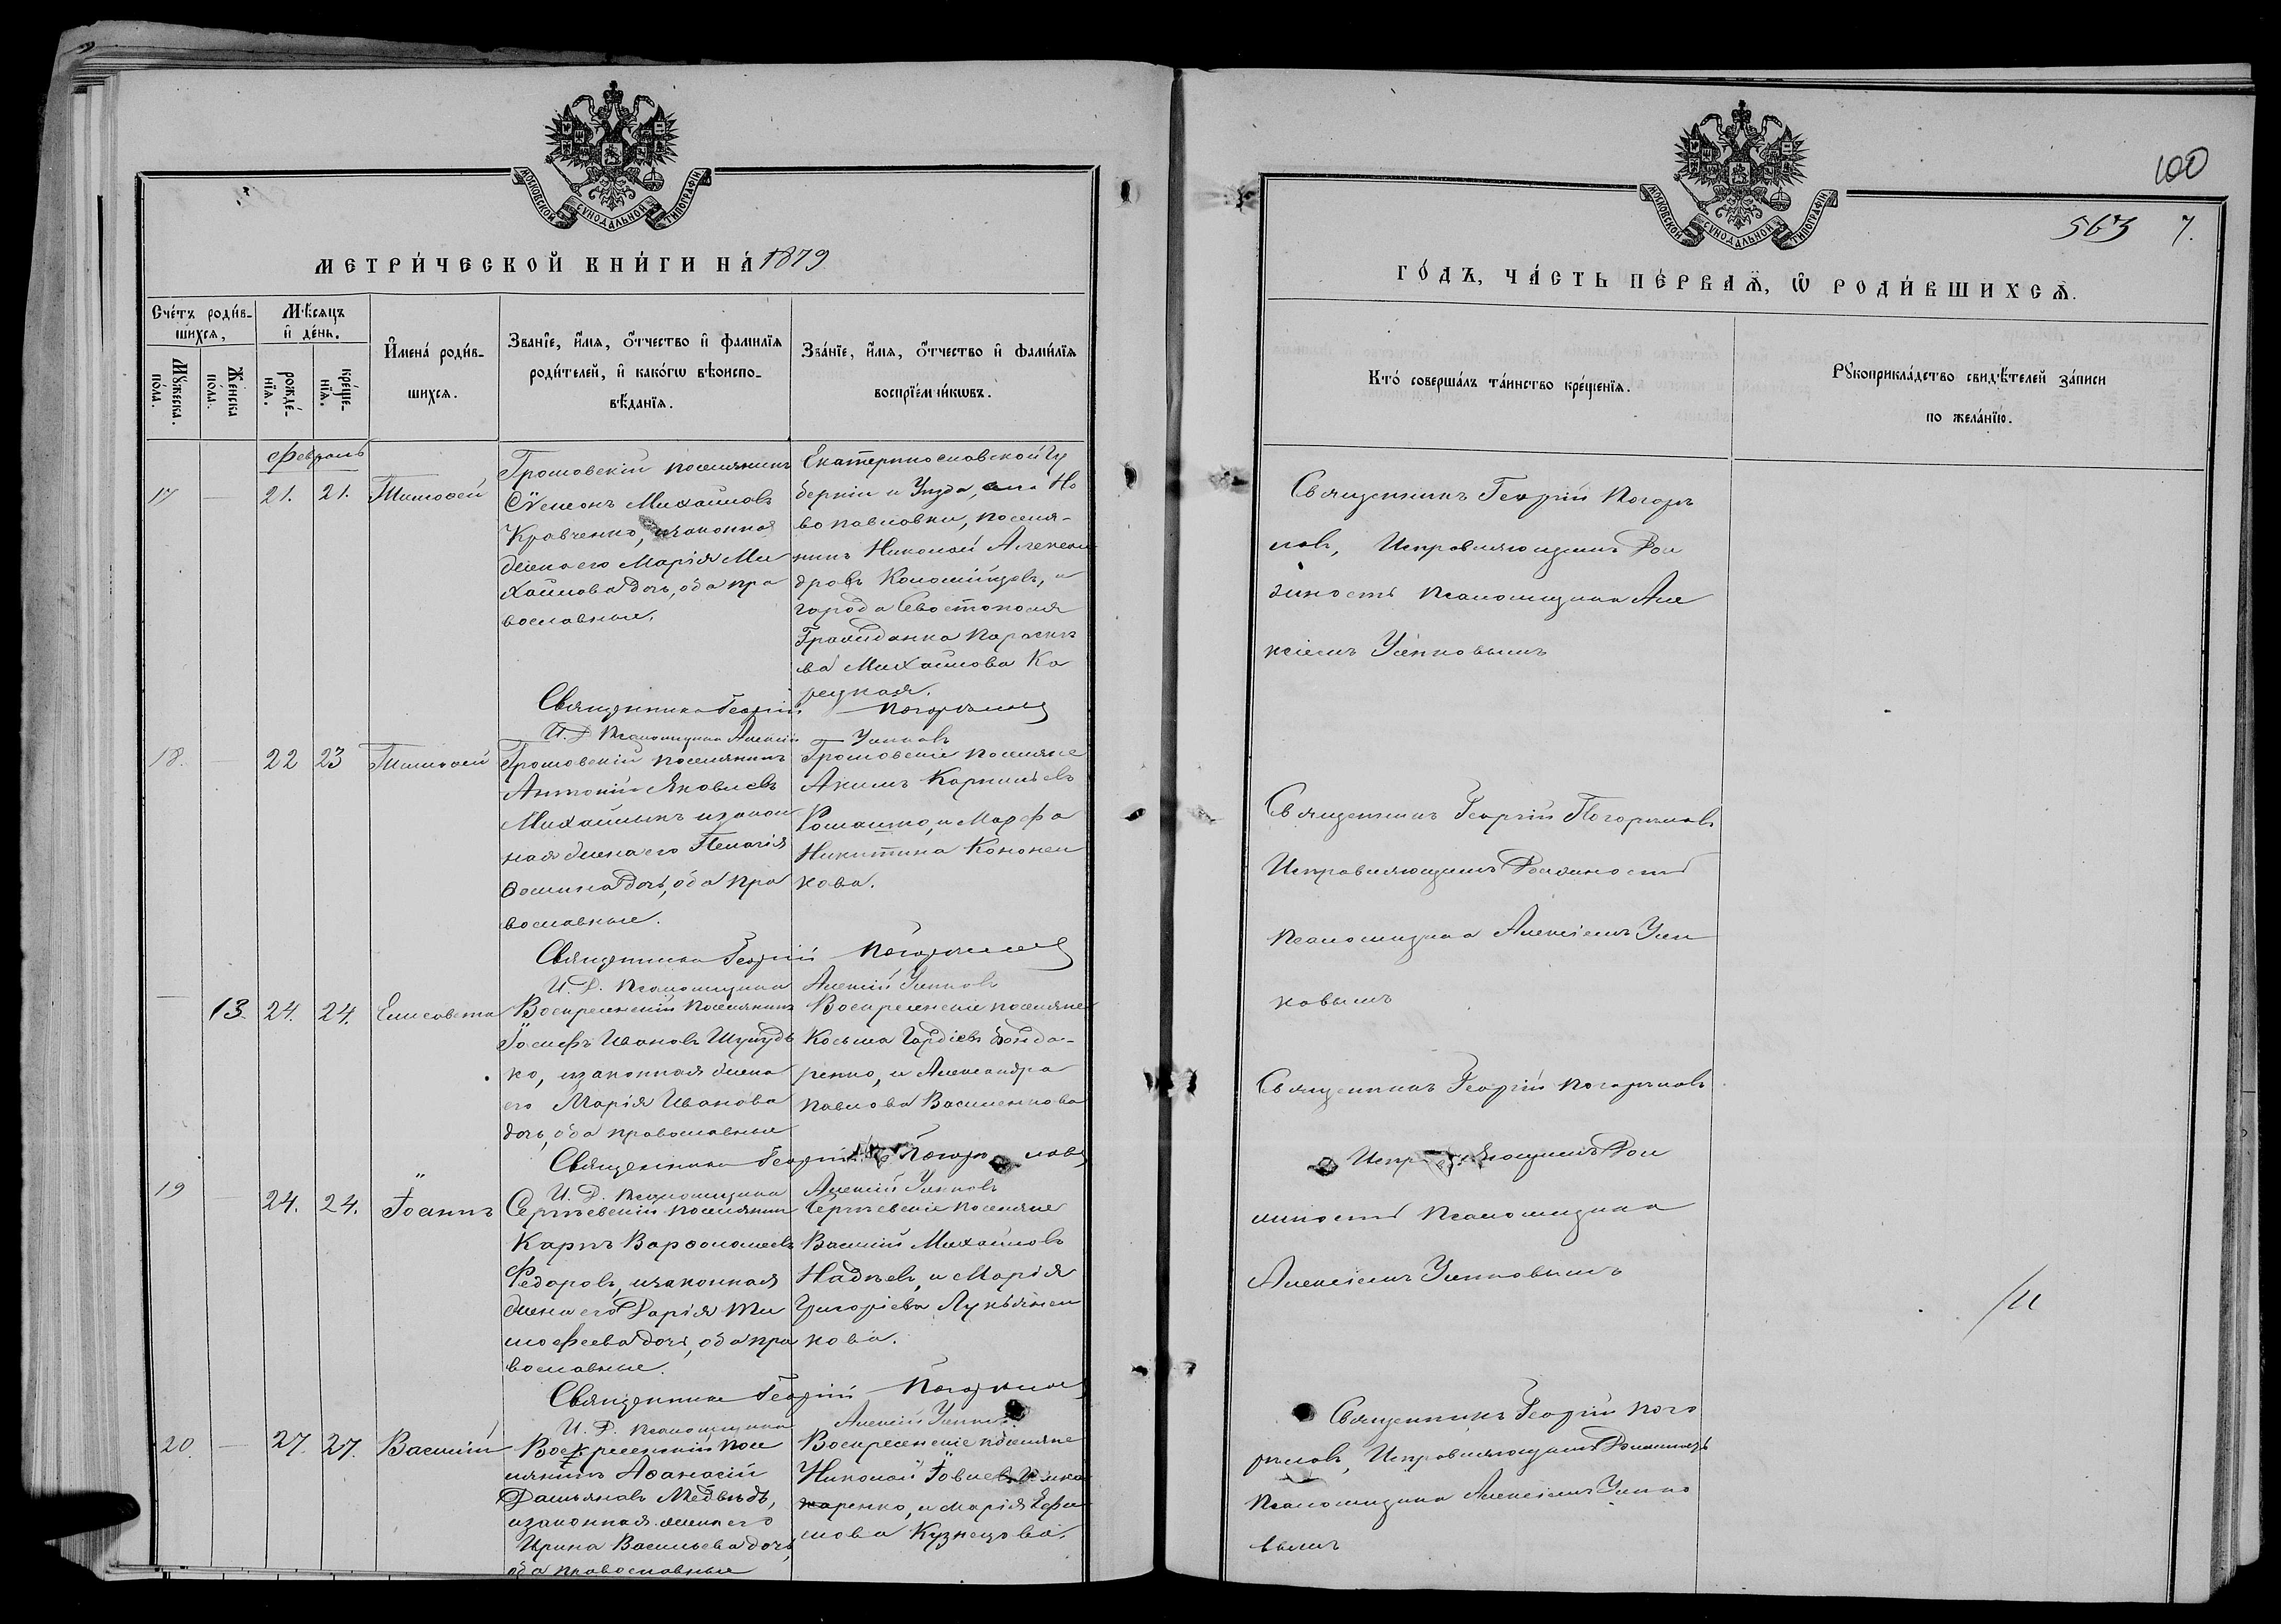 МОСКОВСКОЙ СУНОДАЛЬНОЙ ТИПОГРАФІИ
МЕТРИ́ЧЕСКОЙ КНИ́ГИ НА́ 1879
Сче́тъ роди́в-
шихся,
Мѣ́сяцъ
и҆ де́нь.
Мꙋ́жеска
по́ла.
Же́нска
по́ла.
рожде́-
нїя.
креще́-
нїя.
И҆мена̀ роди́в-
шихся.
Зва́нїе, и҆́мя, о҆́тчество и҆ фами́лїя
роди́телей, и҆ како́гѡ вѣроиспо-
вѣ́данїя.
Зва́нїе, и҆́мя, о҆́тчество и҆ фами́лїя
воспрїе́мникѡвъ.
Февраль
17
—
21.
21.
Тимоѳей
Громовскій поселянинъ
Сѵмеонъ Михайловъ
Кравченко, и законная
жена его Марія Ми
хайлова дочь, оба пра
вославные.
Екатеринославской Гу
берніи и Уѣзда, села Но
во павловки, поселя-
нинъ Николай Алексан
дровъ Коломійцовъ, и
города Севастополя
Гражданка Параске
ва Михайлова Ка
рецкая.
Священникъ Георгій Погорѣлов
И. Д. Псаломщика Алексій
18.
—
22
23
Тимоѳей
Громовскій поселянинъ
Антоній Яковлевъ
Михайлыкъ и закон
ная жена его Пелагія
Ѳомина дочь, оба пра
вославные.
Громовскіе поселяне
Акимъ Корнилъевъ
Романко, и Марфа
Никитина Кононен
кова.
Священникъ Георгій Погорѣлов
И. Д. Псаломщика Алексій
—
13.
24.
24.
Елисавета
Воскресенскій поселянинъ
Іосифъ Ивановъ
ко, и законная жена
его Марія Иванова
дочь, оба православные
Воскресенскіе поселяне
Косьма Гордіевъ Бонда-
ренко, и Александра
Павлова Василенкова
Священникъ Георгій Погорѣловъ
И. Д. Псаломщика Алексій
19
—
24.
24.
Іоаннъ
Сергѣевскій поселянин
Карпъ Варѳоломеевъ
Федоровъ, и законная
жена его Дарія Ти
мофеева дочь, оба пра
вославные.
Сергѣевскіе поселяне
Василій Михайловъ
Надѣевъ, и Марія
Григорьева Лукьянен
кова.
Священникъ Георгій Погорѣлов
И. Д. Псаломщика Алексій
20.
—
27.
27.
Василій
Воскресенскій посе
лянинъ Аѳанасій
Дамьяновъ Медвѣдь,
и законная жена его
Ирина Васильева дочь,
оба православные
Воскресенскіе поселяне
Николай Іовлевъ
каренко, и Марія Ефи
мова Кузнецова.
100
563 7.
МОСКОВСКОЙ СУНОДАЛЬНОЙ ТИПОГРАФІИ
ГО́ДЪ, ЧА́СТЬ ПЕ́РВАЯ, Ѡ РОДИ́ВШИХСЯ.
Кто̀ соверша́лъ та́инство креще́нїя.
Рꙋкоприкла́дство свидѣ́телей за́писи
по жела́нїю.
Священникъ Георгій Погорѣ
ловъ, Исправляющимъ Дол
жность Псаломщика Але
ксіемъ
Священникъ Георгій Погорѣловъ
Исправляющимъ Должность
Псаломщика Алексіемъ
ковымъ
Священникъ Георгій Погорѣловъ
Исправляющимъ Дол
жность Псаломщика
Алексіемъ
Священникъ Георгій Пого
рѣловъ, Исправляющимъ Должность
Псаломщика Алексіемъ
вымъ